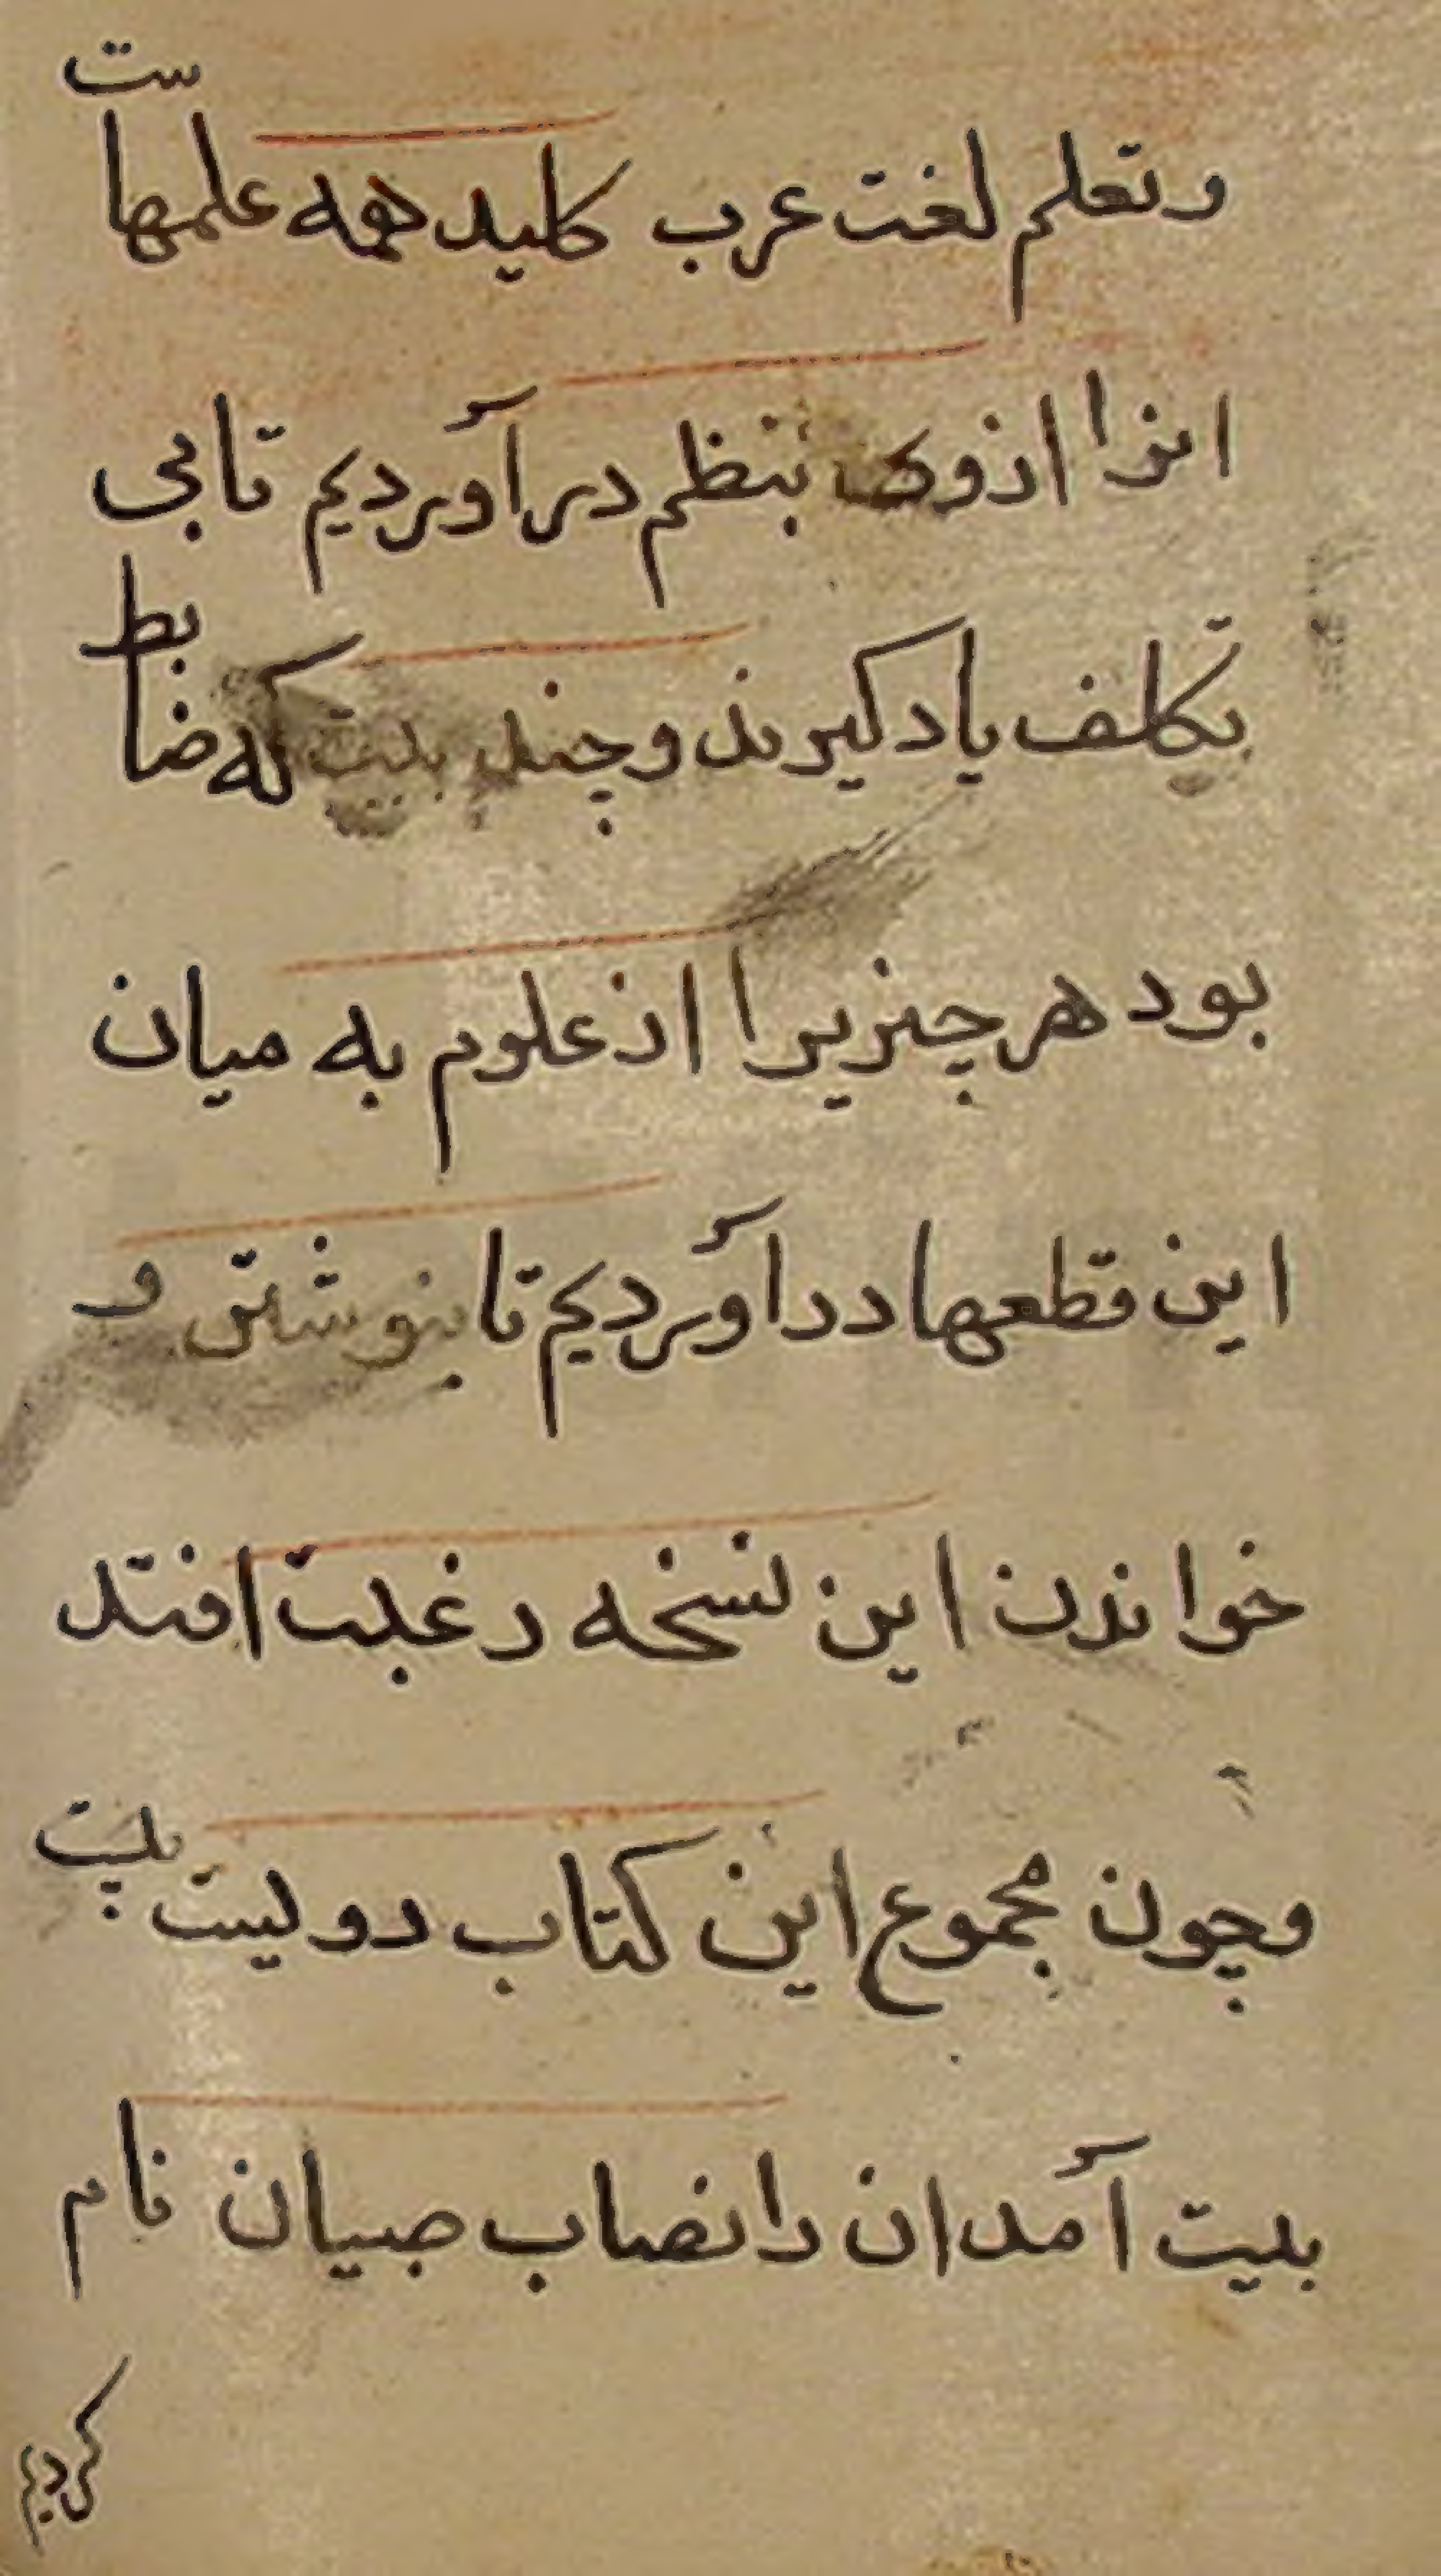 وتعلم لغت عرب کلید همه علمهاست
انرا ازوی بنظم درآوردیم تابی
تکلف یاد کیرند وچند بیت که ضابط
بود هر چیزیرا از علوم به میان
این قطعها درآوردیم تا بنوشتن و
خواندن این نسخه رغبت افتد
وچون مجموع این کتاب دویست بیت
بیت آمد ان را نصاب صبیان نام
کردیم